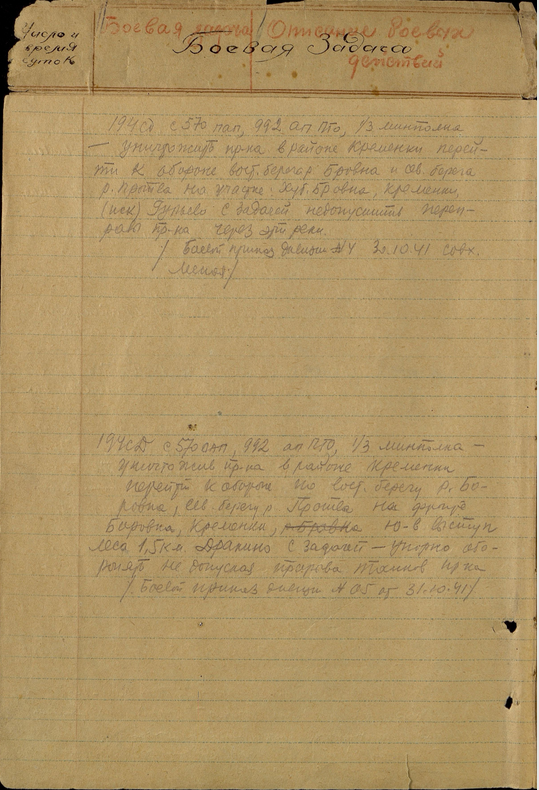 Число и
время
суток
Боевая задача Описание боевых
Боевая Задача
действий
194 сд с 570 пап, 992 ап ПТО, 1/3 минполка
— уничтожить пр-ка в районе Кременки перей-
ти к обороне вост. берега р. Боровна и сев. берега
р. Протва на участке: Боровна, Кременки,
(иск) с задачей недопустить переп-
раву пр-ка через эти реки.
/ Боевой приказ дивизии №4 10.41 совх.
/
194 СД с 570 пап, 992 ап ПТО, 1/3 минполка —
уничтожив пр-ка в районе Кременки
перейти к обороне по вост. берегу р. Бо-
ровна, сев. берегу р Протва на фронте
Боровка, Кременки, р. Боровна ю-в выступ
леса 1,5 км. Дракино с задачей — упорно обо-
ронять не допуская прорыва танков пр-ка
/ Боевой приказ дивизии № 05 от 31.10.41/